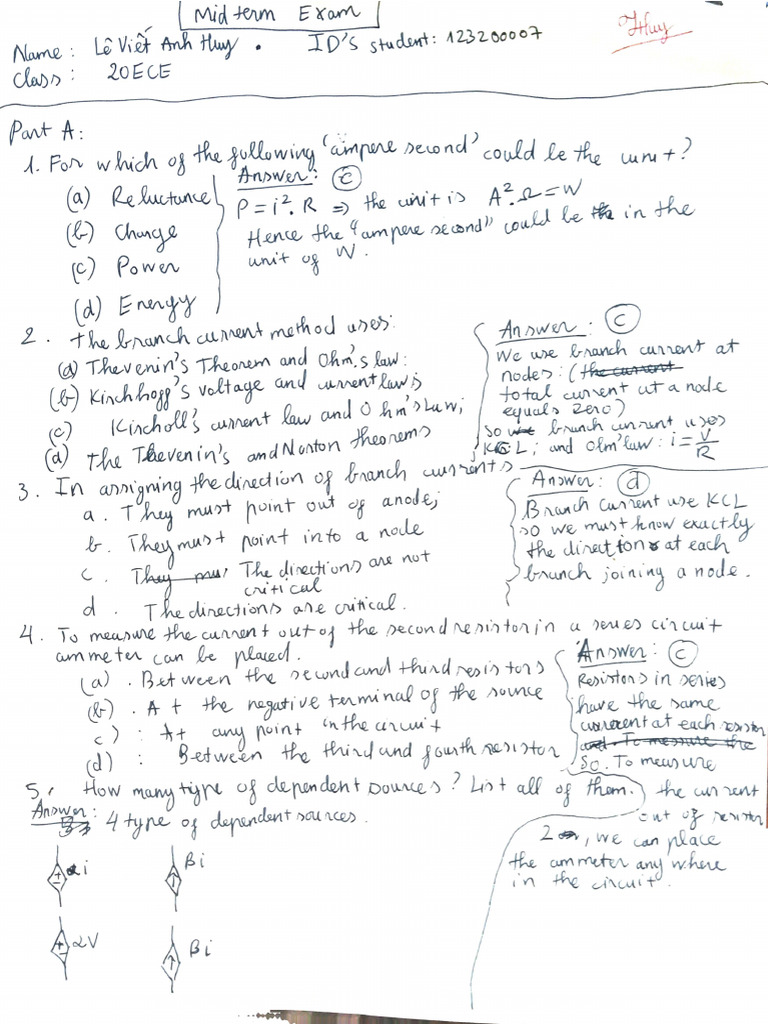 Midterm Exam
Name: Lê Viết Anh Huy. ID's student: 123200007
Thuy
Class: 20ECE
Part A:
1. For which of the following 'ampere second' could be the unit?
(a) Reluctance
(b) Charge
(c) Power
(d) Energy
Answer: (c)
P = i². R ⇒ the unit is A². Ω = W
Hence the "ampere second" could be in the
unit of W.
2. the branch current method uses:
(a) Thevenin's Theorem and Ohm's law:
(b) Kirchhogg's voltage and current laws;
(c) Kircholl's current law and Ohm's Law;
(d) the Thevenin's and Norton theorems
Answer: (c)
We use branch current at
nodes: (the current
total current at a node
equals zero)
so branch current uses
KCL; and Ohm'law: i = V/R
3. In assigning the direction of branch currents
a. They must point out of a node;
b. They must point into a node
c. They mus The directions are not
critical
d. The directions are critical.
Answer: (d)
Branch current use KCL
so we must know exactly
the direction at each
branch joining a node.
4. To measure the current out of the second resistor in a series circuit
ammeter can be placed.
(a). Between the second and third resistors
(b). At the negative terminal of the source
c): At any point in the circuit
(d): Between the third and fourth resistor
Answer: (c)
Resistors in series
have the same
current at each resistor
and. To measure the
So. To measure
the current
out of resistor
2, we can place
the ammeter any where
in the circuit.
5. How many type of dependent sources? List all of them.
Answer:
4 type of dependent sources.
αi
βi
αV
βi